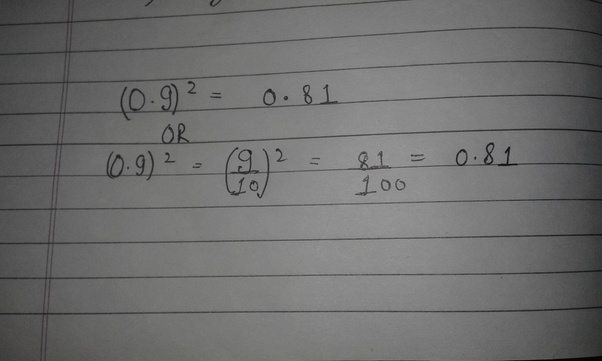 (0.9)² = 0.81
OR
(0.9)² = (9/10)² = 81/100 = 0.81